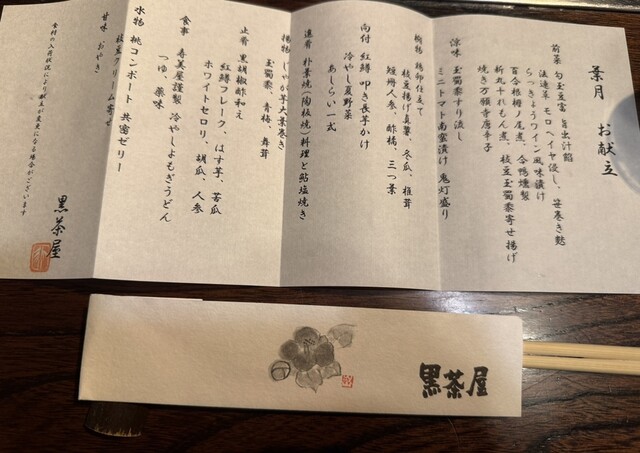 葉月　お献立
前菜　勾玉豆富　旨出汁餡
法蓮草　モロヘイヤ浸し、笹巻き麩
らっきょうワイン風味漬け
百合根梅ノ尾煮、合鴨燻製
折れもん煮、枝豆玉蜀黍寄せ揚げ
焼き万願寺唐辛子
涼味　玉蜀黍すり流し
ミニトマト南蛮漬け　鬼灯盛り
椀物　鶏卵仕立て
枝豆揚げ真薯、冬瓜、椎茸
短冊人参、酢橘、三つ葉
向付　紅鱒叩き長芋かけ
冷やし夏野菜
あしらい一式
進肴　朴葉焼(陶板焼)料理と鮎塩焼き
揚物　じゃが芋大葉巻き
玉蜀黍、青梅、舞茸
止肴　黒胡椒酢和え
紅鱒フレーク、はす芋、苦瓜
ホワイトセロリ、胡瓜、人参
食事　寿美屋謹製　冷やしよもぎうどん
つゆ、薬味
水物　桃コンポート　共蜜ゼリー
枝豆クリーム寄せ
甘味　おやき
食材の入荷状況により献立が変更になる場合がございます
黒茶屋
黒茶屋